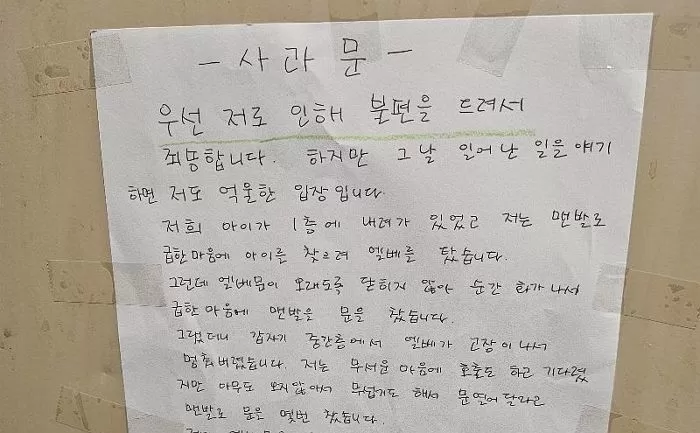 - 사 과 문 -
우선 저로 인해 불편을 드려서
죄송합니다. 하지만 그날 일어난 일을 얘기
하면 저도 억울한 입장입니다.
저희 아이가 1층에 내려가 있었고 저는 맨발로
급한마음에 아이를 찾으려 엘베를 탔습니다.
그런데 엘베문이 오래도록 닫히지 않아 순간 화가나서
급한마음에 맨발을 문을 찼습니다.
그랬더니 갑자기 중간층에서 엘베가 고장이나서
멈춰버렸습니다. 저는 무서운 마음에 호출도 하근 기다렸
지만 아무도 오지않아서 무섭기도 해서 문열어달라고
맨발로 문을 몇번 찼습니다.